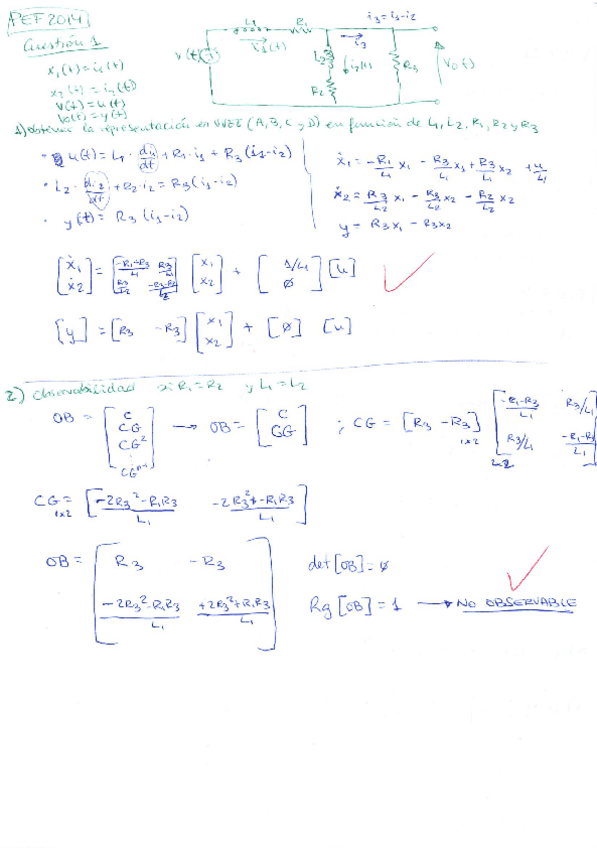 PEF 2014
Cuestión 1
x₁(t) = i₁(t)
x₂(t) = i₂(t)
v(t) = u(t)
v₀(t) = y(t)
L₁ R₁ i₃ = i₁-i₂
v(t) i₁(t) i₃
L₂ i₂(t) R₃ V₀(t)
R₂
1) obtener la representación en VVEE (A, B, C y D) en función de L₁, L₂, R₁, R₂ y R₃
· u(t) = L₁ · di₁/dt + R₁·i₁ + R₃(i₁-i₂)
· L₂ · di₂/dt + R₂·i₂ = R₃(i₁-i₂)
· y(t) = R₃(i₁-i₂)
ẋ₁ = -R₁/L₁ x₁ - R₃/L₁ x₁ + R₃/L₁ x₂ + u/L₁
ẋ₂ = R₃/L₂ x₁ - R₃/L₂ x₂ - R₂/L₂ x₂
y = R₃x₁ - R₃x₂
[ẋ₁ ẋ₂] = [-R₁-R₃/L₁ R₃/L₁ R₃/L₂ -R₃-R₂/L₂] [x₁ x₂] + [1/L₁ ∅] [u]
[y] = [R₃ -R₃] [x₁ x₂] + [∅] [u]
2) Observabilidad si R₁=R₂ y L₁=L₂
OB = [C CG CG² ⋮ CGⁿ⁻¹] → OB = [C CG] ; CG = [R₃ -R₃]₁ₓ₂ [-R₁-R₃/L₁ R₃/L₁ R₃/L₁ -R₁-R₃/L₁]
CG₁ₓ₂ = [-2R₃²-R₁R₃/L₁ -2R₃²+-R₁R₃/L₁]
OB = [R₃ -R₃ -2R₃²-R₁R₃/L₁ +2R₃²+R₁R₃/L₁]
det[OB] = ∅
Rg[OB] = 1 → NO OBSERVABLE